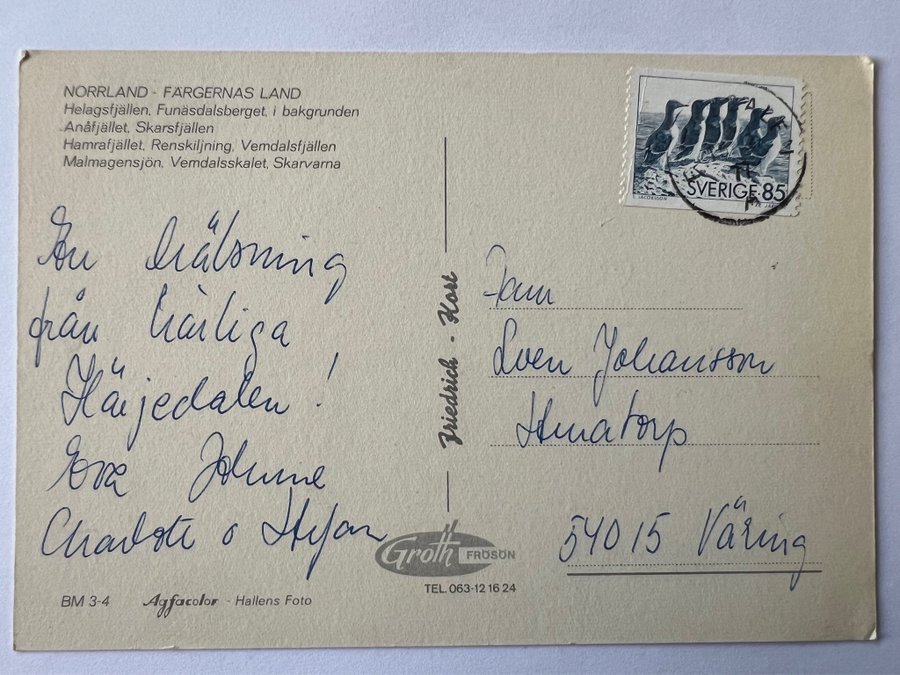 NORRLAND - FÄRGERNAS LAND
Helagsfjällen, Funäsdalsberget, i bakgrunden
Anåfjället, Skarsfjällen
Hamrafjället, Renskiljning, Vemdalsfjällen
Malmagensjön, Vemdalsskalet, Skarvarna
SVERIGE 85
JACOBSSON
En hälsning
från härliga
Härjedalen!
Eva Johnne
Charlotte o Stefan
Friedrich - Kort
Fam
Sven Johansson
54015 Väring
Groth FRÖSÖN
TEL. 063-12 16 24
BM 3-4 Agfacolor - Hallens Foto